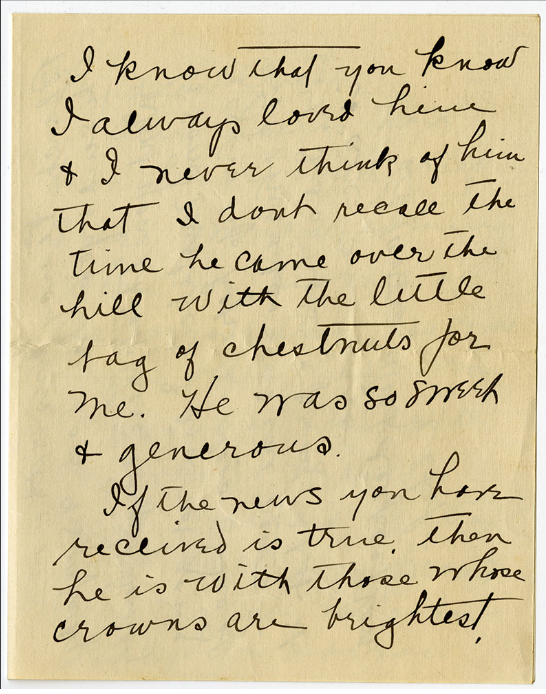 I know that you know
I always loved him
& I never think of him
that I dont recall the
time he came over the
hill with the little
bag of chestnuts for
me. He was so sweet
& generous.
If the news you have
received is true, then
he is with those whose
crowns are brightest,